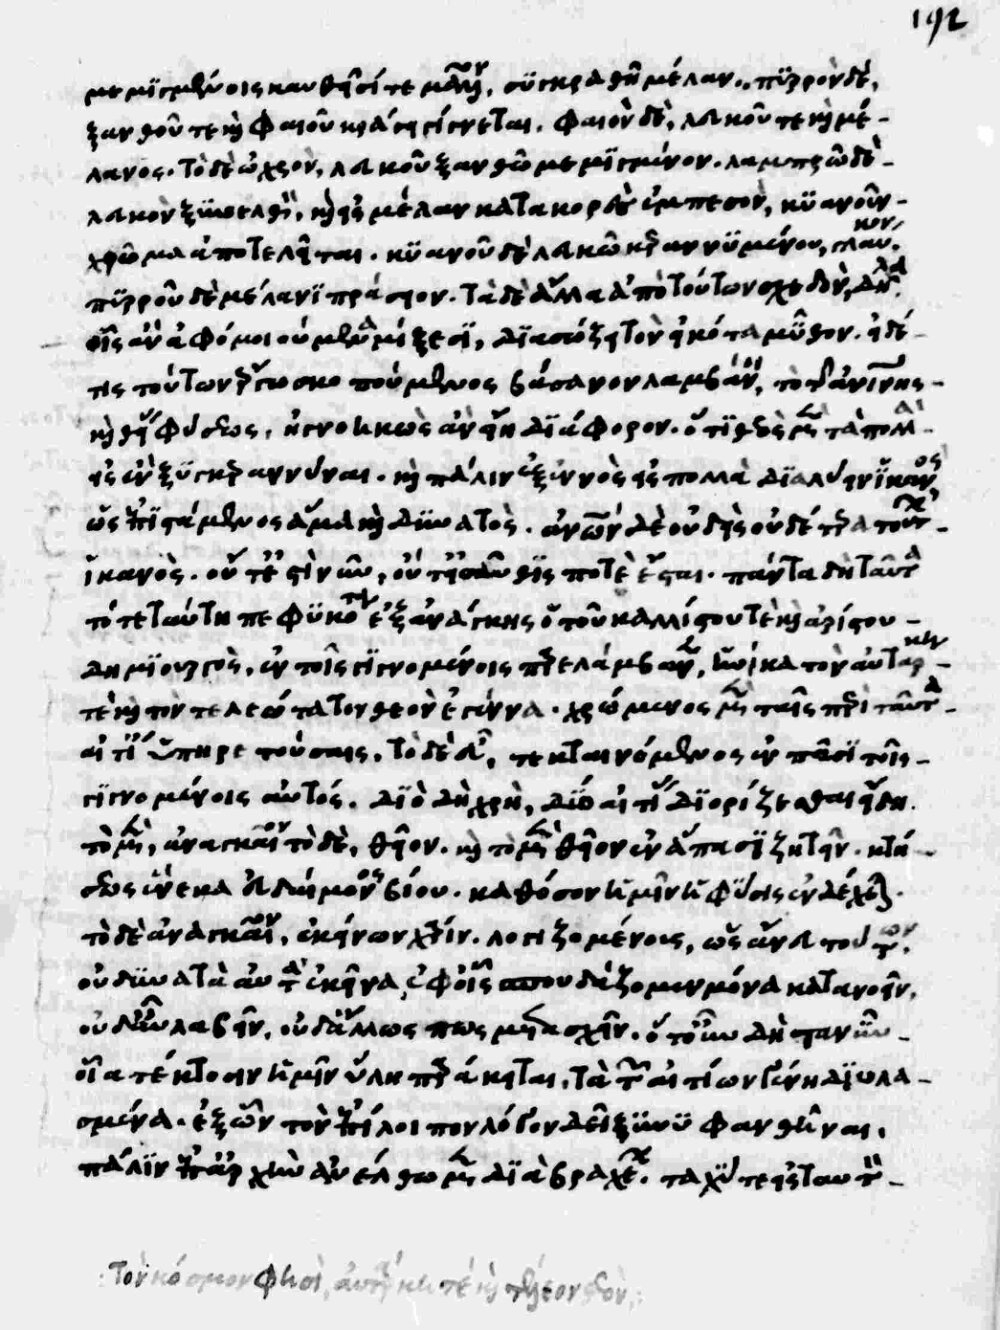 192
μεμιγμένοις καυθεῖσί τε μᾶλλον, συγκραθῆ μέλαν. πυρρὸν δὲ,
ξανθοῦ τε καὶ φαιοῦ κράσει γίνεται. φαιὸν δὲ, λευκοῦ τε καὶ μέ-
λανος. τὸ δὲ ὠχρὸν, λευκοῦ ξανθῶ μεμιγμένον. λαμπρῶ δὲ
λευκὸν ξυνελθὸν, καὶ εἰς μέλαν κατακορὲς ἐμπεσὸν, κυανοῦν
χρῶμα ἀποτελεῖται. κυανοῦ δὲ λευκῶ κεραννυμένου, γλαυκόν.
πυρροῦ δὲ μέλανι πράσιον. τὰ δὲ ἄλλα ἀπὸ τούτων σχεδὸν, δῆλα
οἷς ἂν ἀφομοιούμενα μίξεσι, διασώζει τὸν εἰκότα μῦθον. εἰ δέ
τις τούτων ἔργω σκοπούμενος βάσανον λαμβάνοι, τὸ τῆς ἀνθρωπίνης
καὶ θείας φύσεως, ἠγνοηκὼς ἂν εἴη διάφορον. ὅτι θεὸς μὲν τὰ πολλὰ
εἰς ἓν ξυγκεραννύναι. καὶ πάλιν ἐξ ἑνὸς εἰς πολλὰ διαλύειν ἱκανὸς
ὡς ἐπιστάμενος ἅμα καὶ δυνατὸς. ἀνθρώπων δὲ οὐδεὶς οὐδέτερα τούτων
ἱκανὸς. οὔτε ἐστὶ νῦν, οὔτ' εἰσαῦθις ποτὲ ἔσται. πάντα δὴ ταῦτα
τότε ταύτη πεφυκότα ἐξ ἀνάγκης ὁ τοῦ καλλίστου τὲ καὶ ἀρίστου
δημιουργὸς, ἐν τοῖς γιγνομένοις παρελάμβανεν, ἡνίκα τὸν αὐτάρκη
τὲ καὶ τὸν τελεώτατον θεὸν ἐγέννα. χρώμενος μὲν ταῖς περὶ ταῦτα
αἰτίαις ὑπηρετούσαις, τὸ δὲ εὖ, τεκταινόμενος ἐν πᾶσι τοῖς
γιγνομένοις αὐτός. διὸ δὴ χρὴ, δύο αἰτίας διορίζεσθαι εἴδη.
τὸ μὲν, ἀναγκαῖον τὸ δὲ, θεῖον. καὶ τὸ μὲν θεῖον ἐν ἅπασι ζητεῖν. κτή-
σεως ἕνεκα εὐδαίμονος βίου. καθόσον ἡμῖν ἡ φύσις ἐνδέχεται.
τὸ δὲ ἀναγκαῖον, ἐκείνων χάριν. λογιζομένοις, ὡς ἄνευ τούτων,
οὐ δυνατὰ αὐτὰ ἐκεῖνα, ἐφ' οἷς σπουδάζομεν μόνα κατανοεῖν,
οὐδ' αὖ λαβεῖν, οὐδ' ἄλλως πως μετασχεῖν. ὅτ' οὖν δὴ τανῦν
οἷα τέκτοσιν ἡμῖν ὕλη παράκειται, τὰ τῶν αἰτίων γένη διυλα-
σμένα. ἐξ ὧν τὸν ἐπίλοιπον λόγον δεῖ ξυνυφανθῆναι.
πάλιν ἐπ' ἀρχὴν ἀνέλθωμεν διὰ βραχέων. ταχύ τε εἰς ταυτὸν
τὸν κόσμον φησὶ,